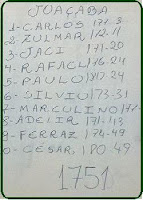 JOAÇABA
1-CARLOS 171-3
2-ZULMAR, 172-11
3-JACI 171-20
4-RAFAEL 176-24
5-PAULO 817-24
6-SILVIO 173-31
7-MARCULINO
8-ADELIR 171-43
9-FERRAZ 174-49
0-CÉSAR, 180-49
1751